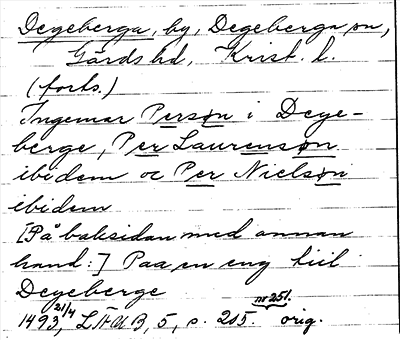 Degeberga, by, Degeberga sn,
Gärds hd, Krist. l.
(forts.)
Ingemar Persøn i Dege-
berge, Per Laurensøn
ibidem oc Per Nielsøn
ibidem
[På baksidan med annan
hand:] Paa en eng tiil
Degeberge
1493 21/4, LÄUB, 5, s. 205. nr 251. orig.